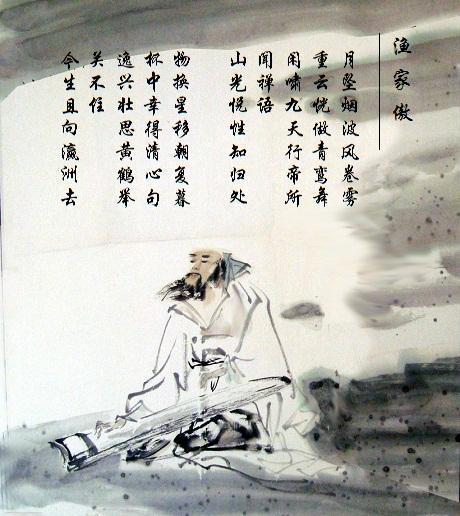 渔家傲
月坠烟波风卷雾
重云恍做青鸾舞
闲啸九天行帝所
闻禅语
山光悦性知归处
物换星移朝复暮
杯中幸得清心句
逸兴壮思黄鹤举
关不住
今生且向瀛洲去